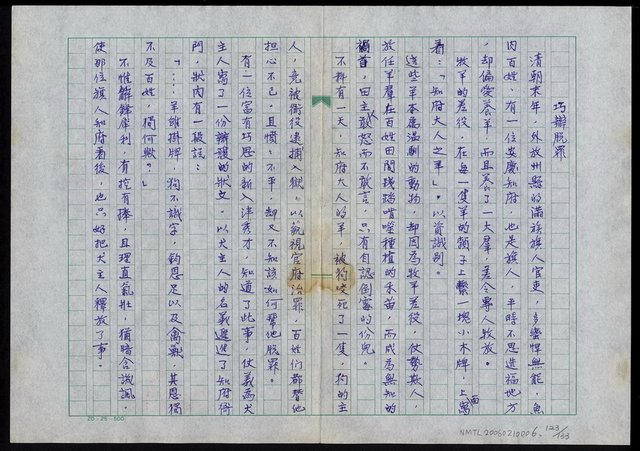 巧辯脫罪
清朝末年,外放州縣的滿族旗人官吏,多蠻悍無能,魚
肉百姓,有一位安慶知府,也是旗人,平時不思造福地方
,却偏愛養羊,而且養了一大群,差令專人牧放。
牧羊的差役,在每一隻羊的頸子上繫一塊小木牌,上面寫
着:「知府大人之羊」。以資識別。
這些羊本是溫馴的動物,却因為牧羊差役,仗勢欺人,
放任羊群在百姓田間殘踏嚙噬種植的禾苗,而成為無知的
禍首,田主敢怒而不敢言,只有自認倒霉的份兒。
不料有一天,知府大人的羊,被狗咬死了一隻,狗的主
人,竟被衙役逮捕入獄,以藐視官府治罪,百姓们都替他
担心不已,且憤憤不平,却又不知該如何幫他脫罪。
有一位富有巧思的新入泮秀才,知道了此事,仗義為犬
主人寫了一份辯護的狀文,以犬主人的名義遞進了知府衙
門,狀內有一段說:
「…羊雖掛牌,狗不識字,鈞恩足以及禽獸,其恩獨
不及百姓,獨何歟?」
不惟辭鋒犀利,有挖有捧,且理直氣壯,猶暗含諷諷,
使那位旗人知府看後,也只好把犬主人釋放了事。
20×25=500
NMTL20050210006 123/133